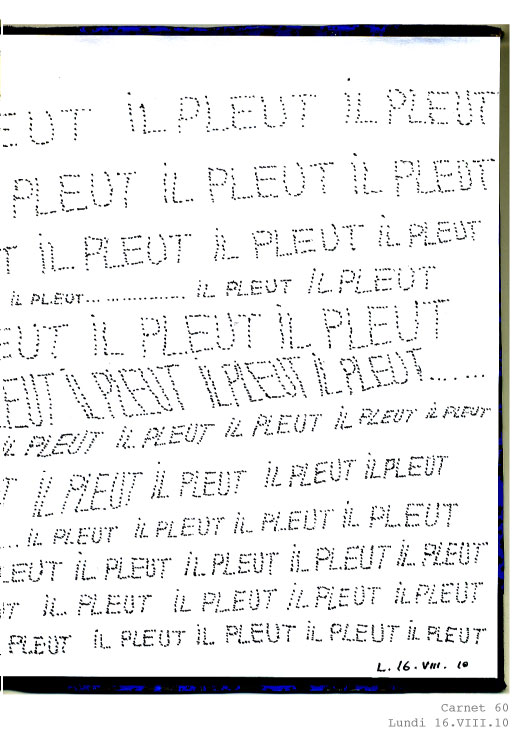 EUT iL PLEUT iL PLEUT
PLEUT iL PLEUT iL PLEUT
T iL PLEUT iL PLEUT iL PLEUT
iL PLEUT................... iL PLEUT iL PLEUT
EUT iL PLEUT iL PLEUT
LEUT iL PLEUT iL PLEUT iL PLEUT.......
iL PLEUT iL PLEUT iL PLEUT iL PLEUT iL PLEUT
T iL PLEUT iL PLEUT iL PLEUT iL PLEUT
... iL PLEUT iL PLEUT iL PLEUT iL PLEUT
LEUT iL PLEUT iL PLEUT iL PLEUT iL PLEUT
UT iL PLEUT iL PLEUT iL PLEUT iL PLEUT
L PLEUT iL PLEUT iL PLEUT iL PLEUT iL PLEUT
L. 16. VIII. 10
Carnet 60
Lundi 16.VIII.10